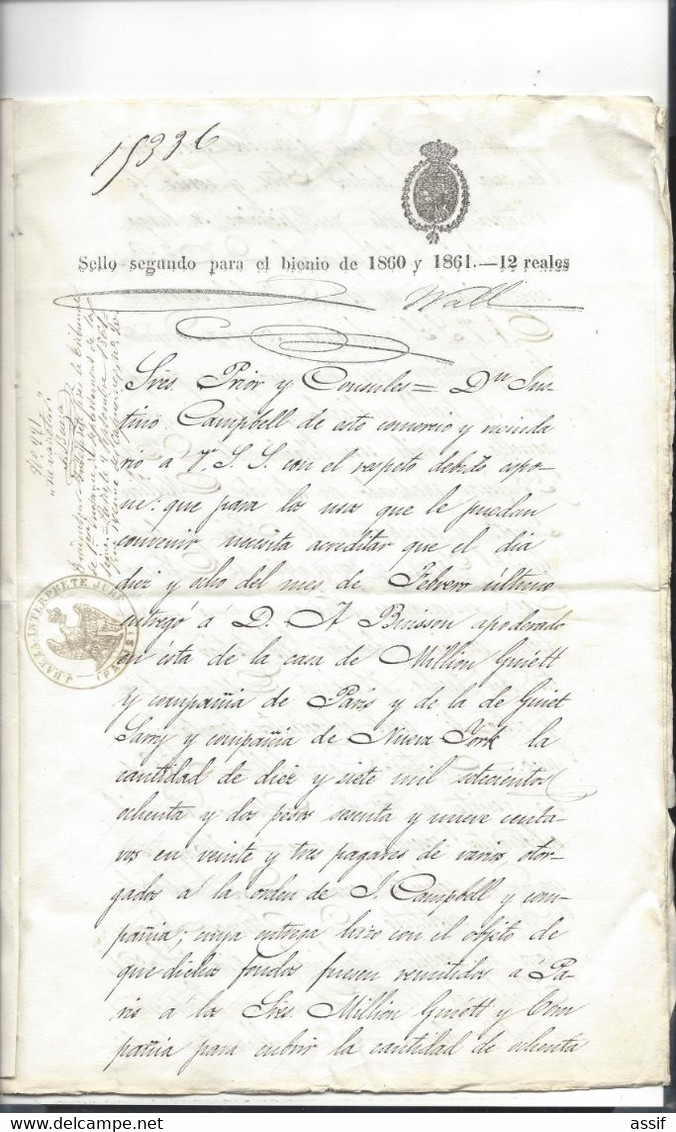 15336
Sello segundo para el bienio de 1860 y 1861.—12 reales
Wall
Sres. Prior y Consules = Dn Jus
tino Campbell de este comercio y vecinda
rio á V. S. S. con el respeto debido espo
ne: que para los usos que le puedan
convenir necesita acreditar que el dia
diez y ocho del mes de Febrero último
entregó á D. A Buisson apoderado
en ésta de la casa de Million Guiétt
y compañia de Paris y de la de Guiet
y compañia de Nueva York la
cantidad de diez y siete mil setecientos
ochenta y dos pesos sesenta y nueve centa
vos en veinte y tres pagares de varios, otor-
gados á la orden de J. Campbell y com-
pañia; cuya entrega hizo con el objeto de
que dichos fondos fuesen remitidos á Pa
ris á los Sres. Million Guiétt y Com
pañia para cubrir la cantidad de ochenta
INTERPRETE JURÉ
(PARIS)
assif